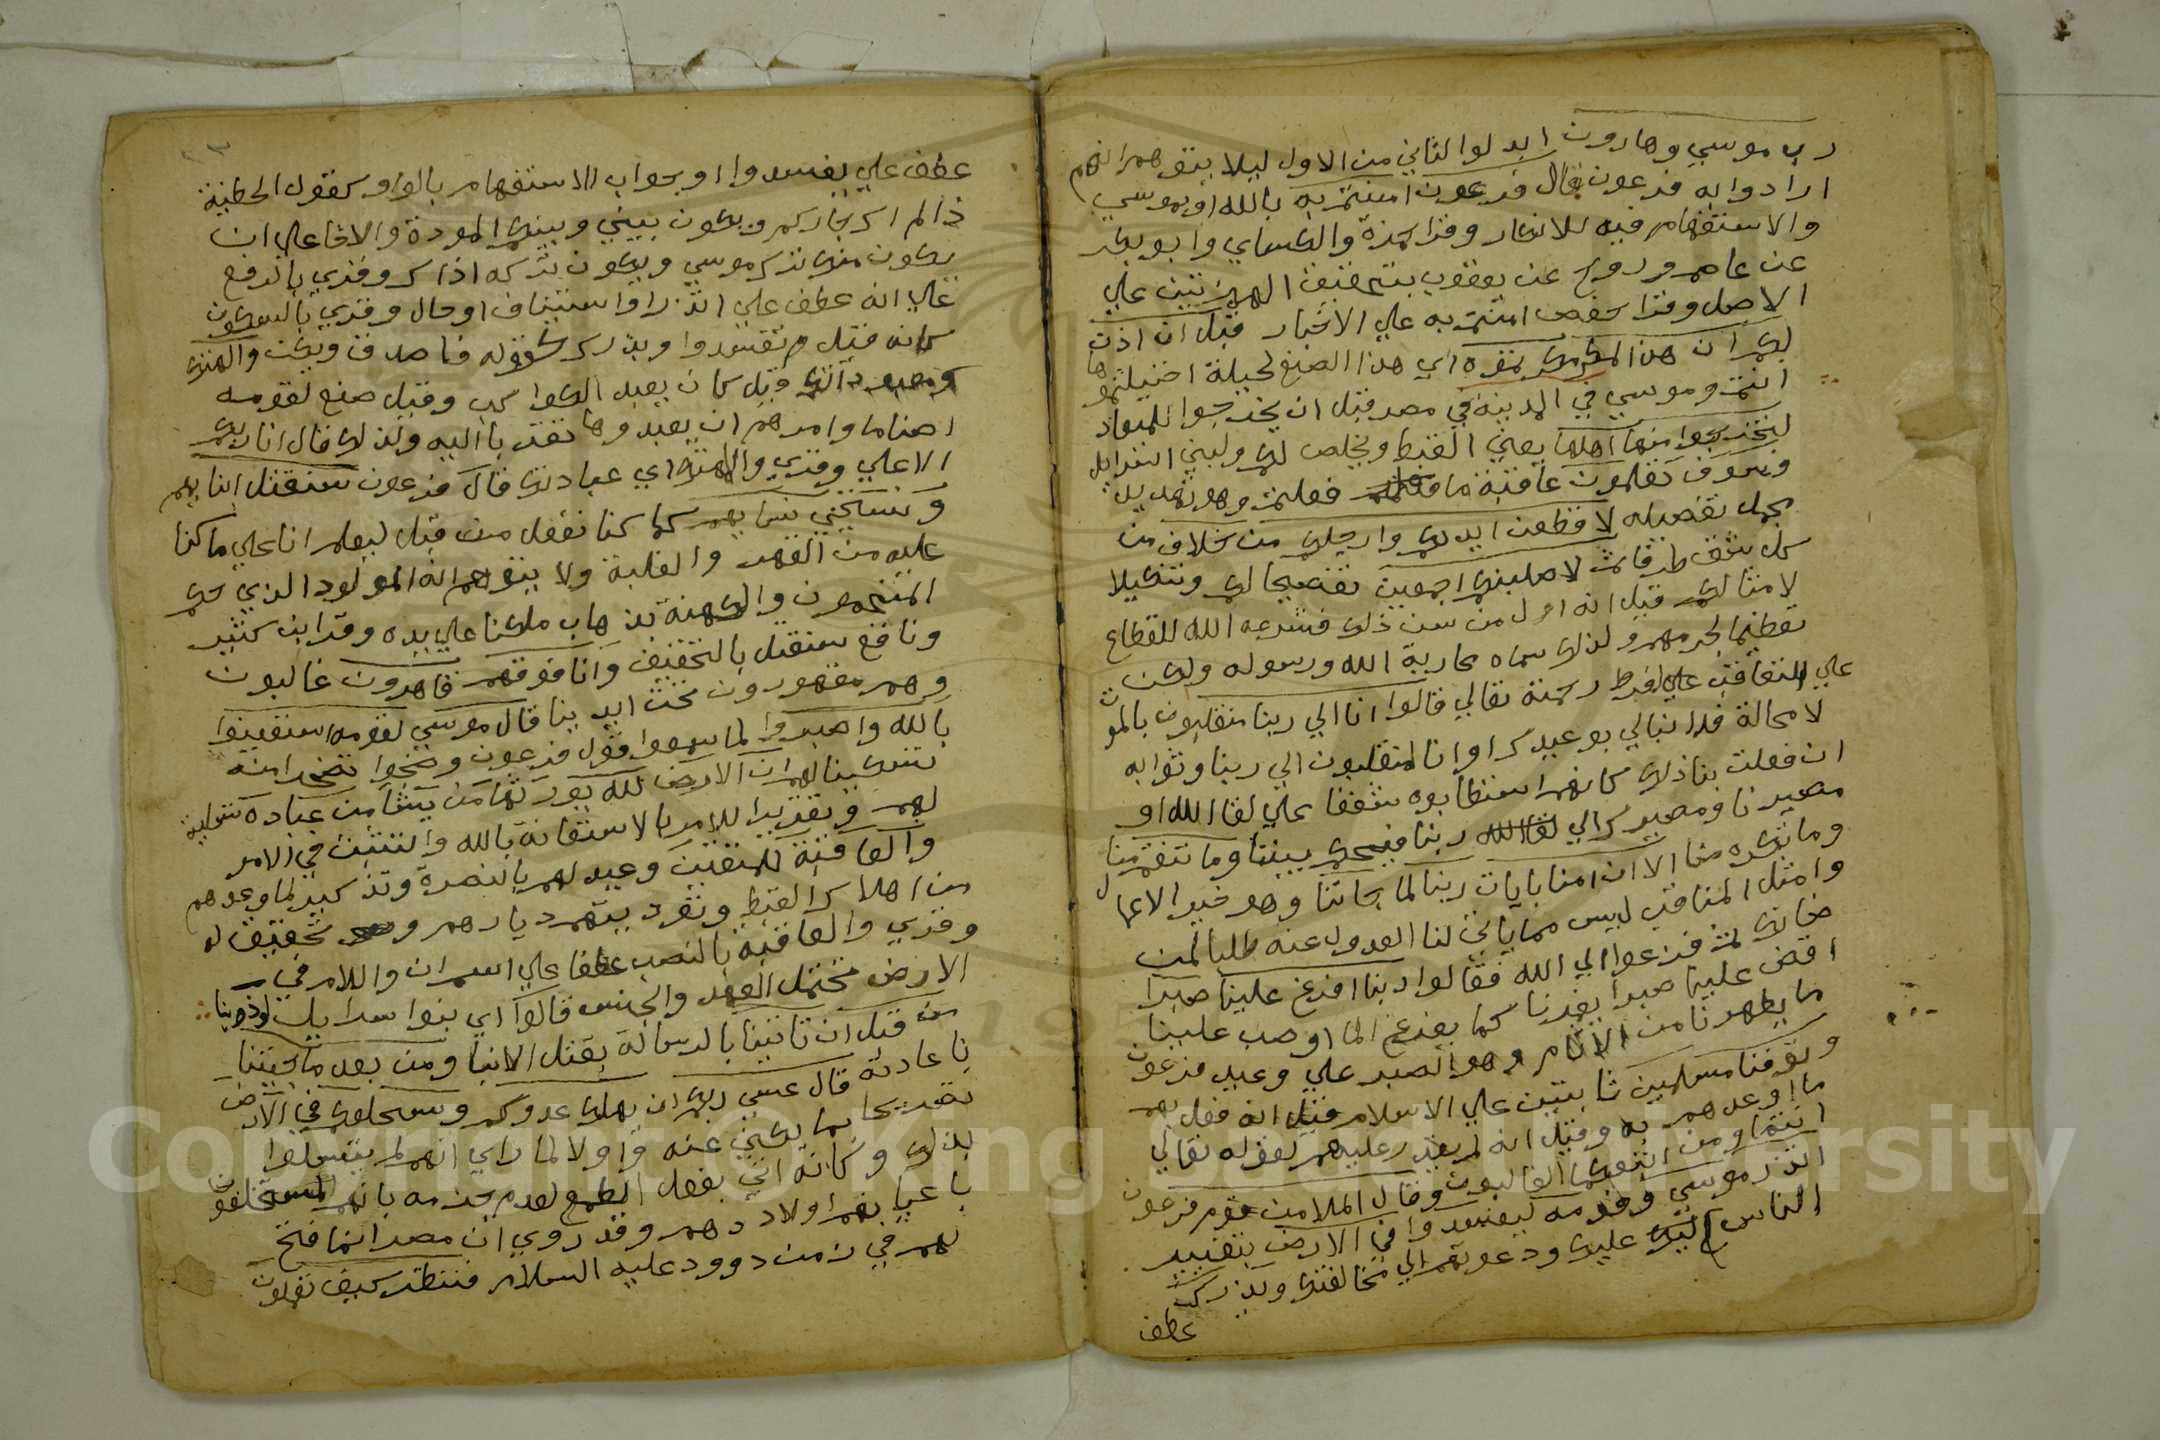 رب موسي وهارون ابدلوا الثاني من الاول ليلا يتوهم انهم
ارادوا به فرعون قال فرعون امنتم به بالله او بموسي
والاستفهام فيه للانكار وقرا حمزة والكساي وابو بكر
عن عاصم وروح عن يعقوب بتحقيق الهمزتين علي
الاصل وقرا حفص امنتم به علي الاخبار قبل ان اذن
لكم ان هذا لمكر مكرتموه اي هذا الصنع لحيلة احتيلتموها
انتم وموسي في المدينة في مصر قبل ان يخرجوا للميعاد
لتخرجوا منها اهلها يعني القبط ويخلص لكم ولبني اسرايل
فسوف تعلمون عاقبة ما فعلتم وهو تهديد
مجمل تفصيله لاقطعن ايديكم وارجلكم من خلاف من
كل شق طرفا ثم لاصلبنكم اجمعين تفضيحا لكم وتنكيلا
لامثالكم قيل انه اول من سن ذلك فشرعه الله للقطاع
تعظيما لجرمهم ولذلك سماه محاربة الله ورسوله ولكن
علي التعاقب علي فرط رحمته تعالي قالوا انا الي ربنا منقلبون بالموت
لا محالة فلا نبالي بوعيدك او انا لمنقلبون الي ربنا وثوابه
ان فعلت بنا ذلك كانهم استطابوه شغفا علي لقا الله او
مصيرنا ومصيرك الي ربنا فيحكم بيننا وما تنقم منا
وما تنكر منا الا ان امنا بايات ربنا لما جاتنا وهو خير الاعمال
وامثل المناقب ليس مما ياتي لنا العدول عنه طلبا لمرضاتك
ثم فزعوا الي الله فقالوا ربنا افرغ علينا صبرا
افض علينا صبرا يغمرنا كما يفرغ الما او صب علينا
ما يطهرنا من الاثام وهو الصبر علي وعيد فرعون
وتوفنا مسلمين ثابتين علي الاسلام قيل انه فعل بهم
ما اوعدهم به وقيل انه لم يقدر عليهم لقوله تعالي
انتما ومن اتبعكما الغالبون وقال الملا من قوم فرعون
اتذر موسي وقومه ليفسدوا في الارض بتغيير
الناس عليك ودعوتهم الي مخالفتك ويذرك
عطف
عطف علي يفسدوا او جواب الاستفهام بالواو كقول الحطيئة
الم اك جاركم ويكون بيني وبينكم المودة والاخا علي ان
يكون منك ترك موسي ويكون تركه اذاك وقري بالرفع
علي انه عطف علي اتذر او استيناف او حال وقري بالسكون
كانه قيل تفسدوا ويذرك كقوله فاصدق واكن والهتك
ومعبوداتك قيل كان يعبد الكواكب وقيل صنع لقومه
اصناما وامرهم ان يعبدوها تقربا اليه ولذلك قال انا ربكم
الاعلي وقري والاهتك اي عبادتك قال فرعون سنقتل ابنايهم
ونستحيي نسايهم كما كنا نفعل من قبل ليعلم انا علي ما كنا
عليه من القهر والغلبة ولا يتوهم انه المولود الذي حكم
المنجمون والكهنة بذهاب ملكنا علي يده وقرا ابن كثير
ونافع سنقتل بالتخفيف وانا فوقهم قاهرون غالبون
وهم مقهورون تحت ايدينا قال موسي لقومه استعينوا
بالله واصبروا لما سمعوا قول فرعون وضجوا تضجرا منه
تسكينا لهم ان الارض لله يورثها من يشا من عباده تسلية
لهم وتقريرا للامر بالاستعانة بالله والتثبت في الامر
والعاقبة للمتقين وعيد لهم بالنصرة وتذكير لما وعدهم
من اهلاك القبط وتوريثهم ديارهم وتحقيق له
وقري والعاقبة بالنصب عطفا علي اسم ان واللام في
الارض تحتمل العهد والجنس قالوا اي بنوا اسرايل اوذينا
من قبل ان تاتينا بالرسالة بقتل الابنا ومن بعد ما جيتنا
باعادته قال عسي ربكم ان يهلك عدوكم ويستخلفكم في الارض
تصريحا بما يكني عنه اولا لما راي انهم لم يتسلوا
بذلك وكانه اتي بفعل الطمع لعدم جزمه بانهم المستخلفون
باعيانهم او اولادهم وقد روي ان مصر انما فتح
لهم في زمن داوود عليه السلام فينظر كيف تعملون